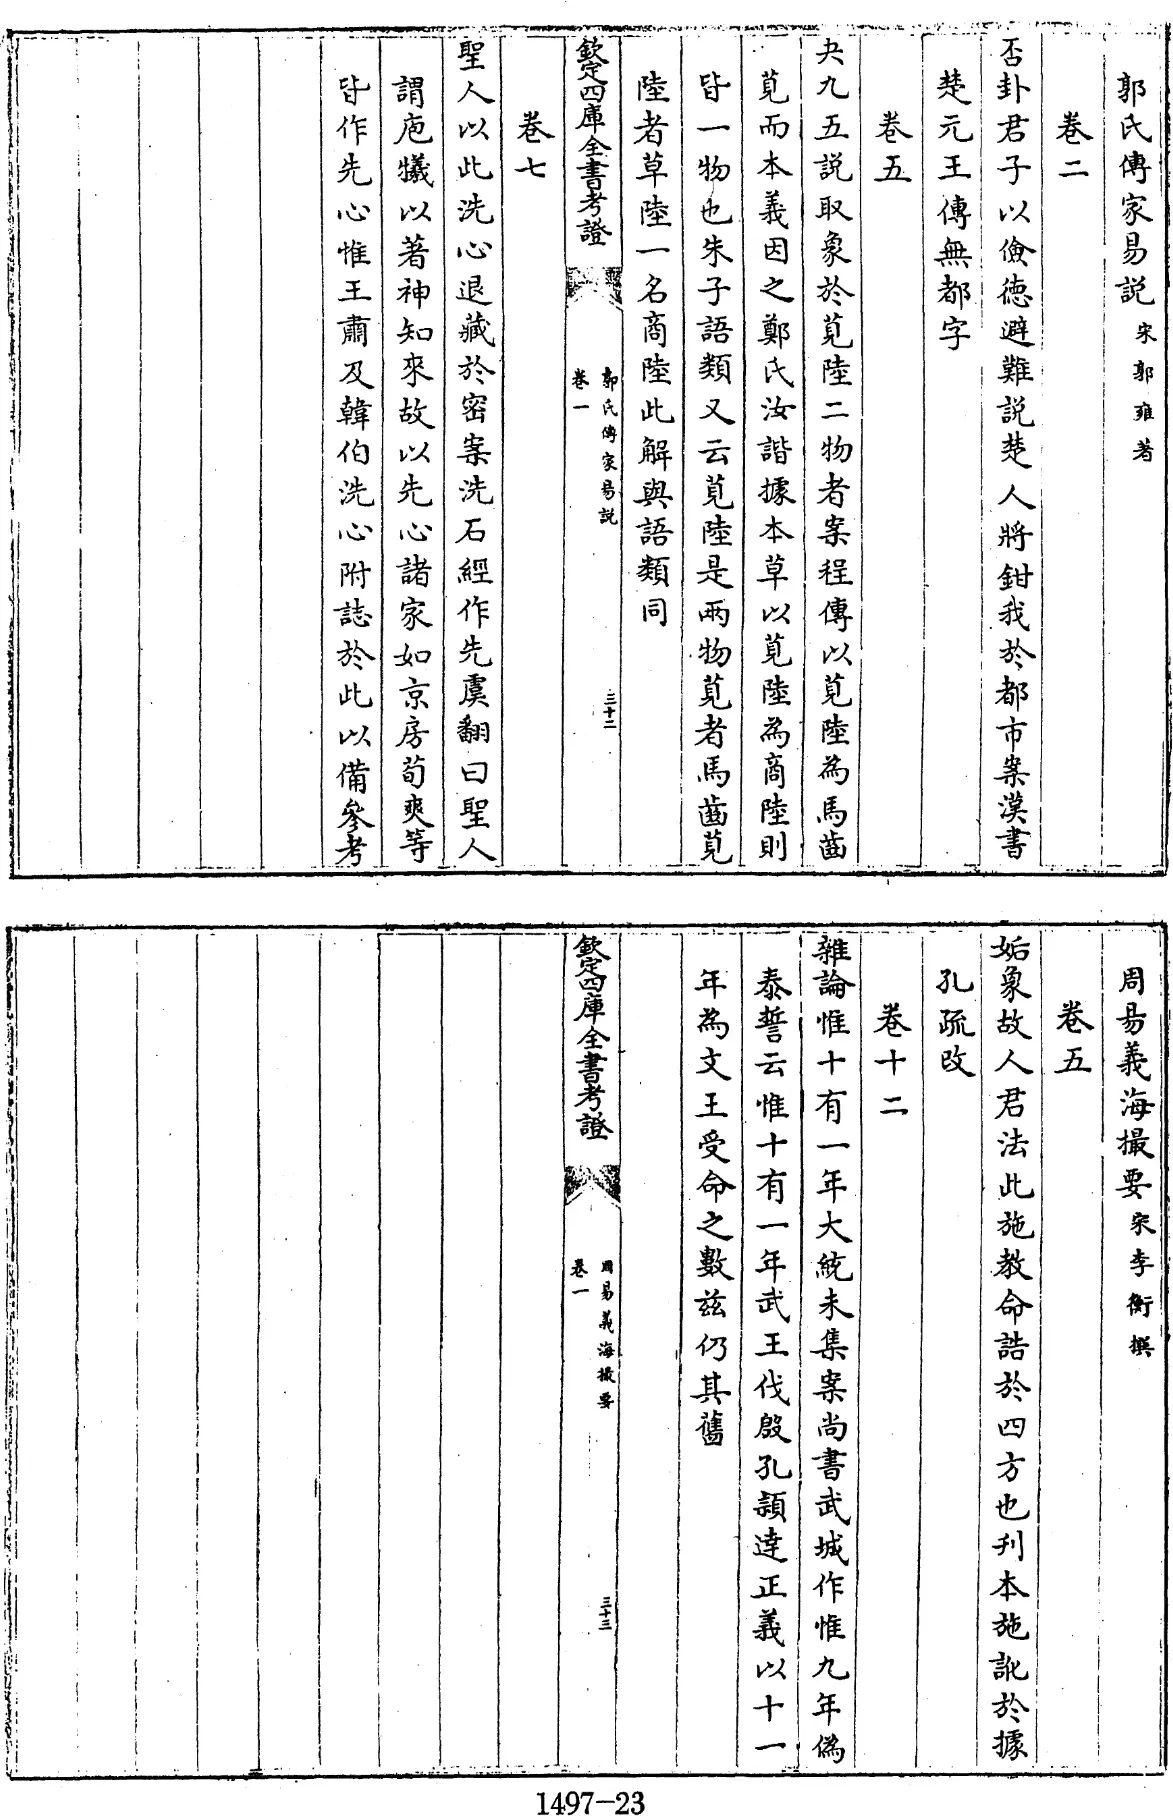 郭氏傳家易説宋郭雍著
卷二
否卦君子以儉徳避難説楚人將鉗我於都市案漢書
楚元王傳無都字
卷五
夬九五説取象於莧陸二物者案程傳以莧陸為馬齒
莧而本義因之鄭氏汝諧據本草以莧陸為商陸則
皆一物也朱子語類又云莧陸是兩物莧者馬齒莧
陸者草陸一名商陸此解與語類同
欽定四庫全書考證
郭氏傳家易説
卷一
三十二
卷七
聖人以此洗心退藏於密案洗石經作先虞翻曰聖人
謂庖犧以蓍神知來故以先心諸家如京房荀爽等
皆作先心惟王肅及韓伯洗心附誌於此以備參考
周易義海撮要宋李衡撰
卷五
姤象故人君法此施教命誥於四方也刋本施訛於據
孔疏改
卷十二
雜論惟十有一年大統未集案尚書武城作惟九年偽
泰誓云惟十有一年武王伐殷孔頴達正義以十一
年為文王受命之數兹仍其舊
欽定四庫全書考證
周易義海撮要
卷一
三十三
1497-23